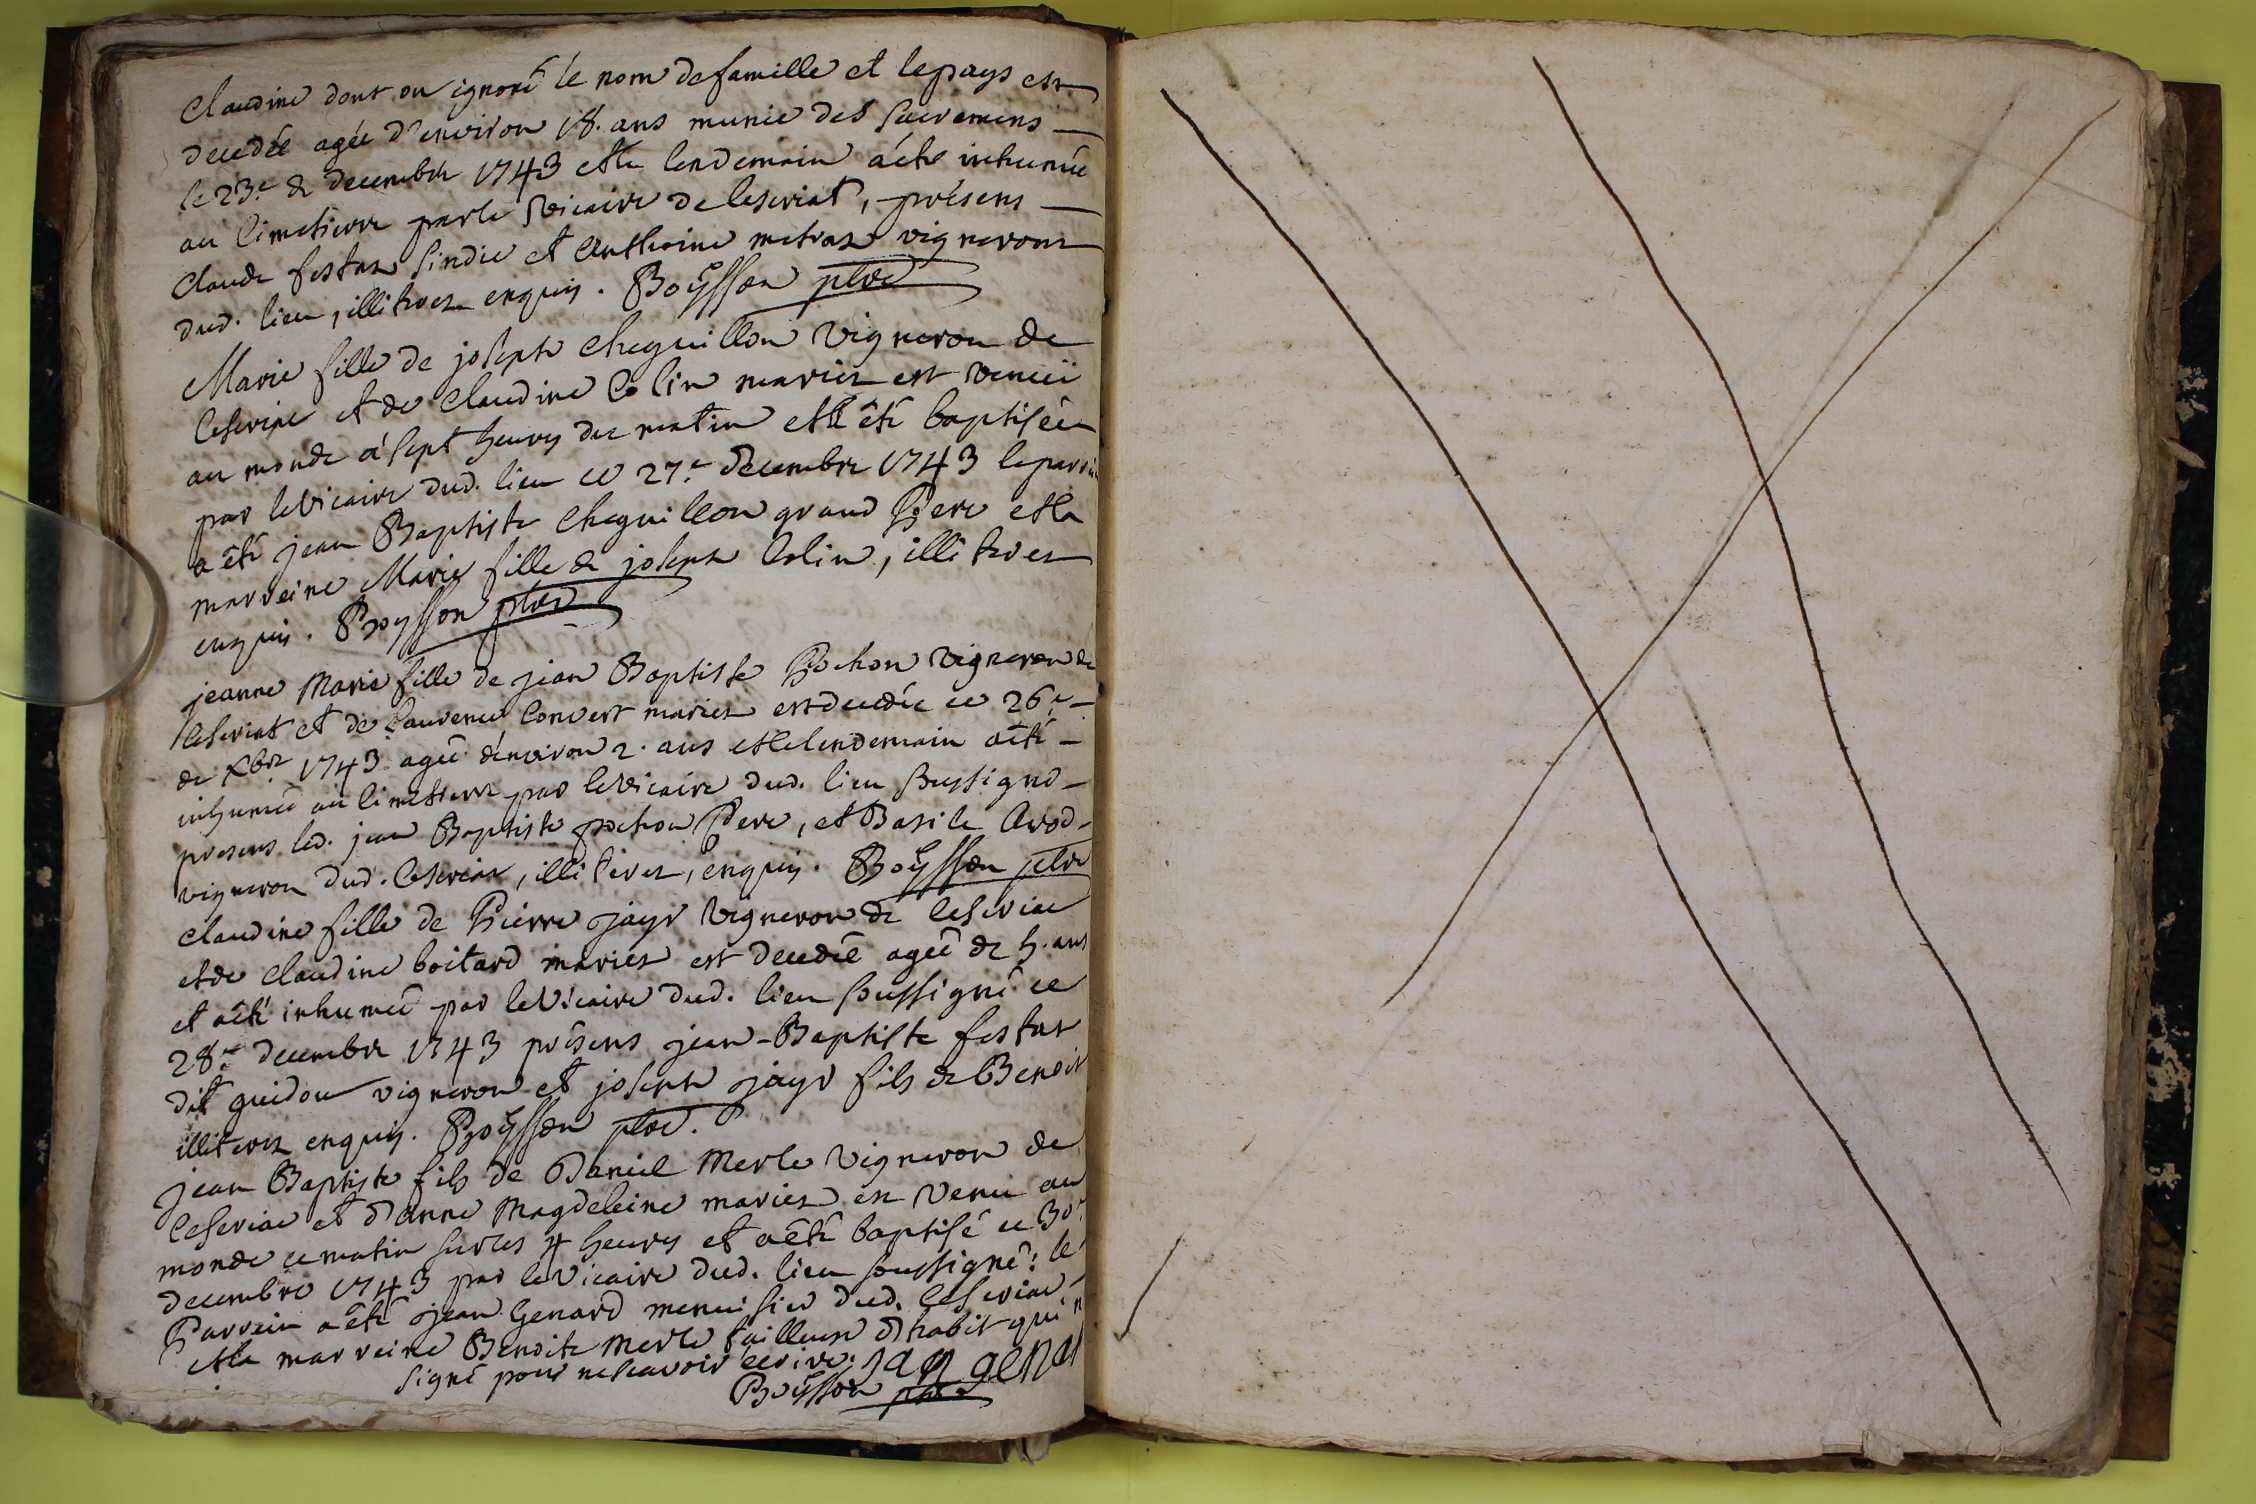 Claudine dont on ignore le nom de famille et le pays est
decedée agée d'environ 18. ans munie des sacremens
le 23.e de decembre 1743 et le lendemain a été inhumée
au cimetierre par le vicaire de Ceseriat, présens
Claude festas sindic et Anthoine metras vignerons
dud. lieu, illitires enquis. Boÿsson ptre
Marie fille de joseph cheguillon vigneron de
Ceserixe et de Claudine Colin mariez est venuë
au monde a sept heures du matin et a été baptisée
par le vicaire dud. lieu ce 27.e decembre 1743 le parrain
a été jean Baptiste cheguillon grand Pere et la
marreine Marie fille de joseph Colin, illitires
enquis. Boysson ptre
jeanne Marie fille de jean Baptiste Pochon vigneron de
Ceseriat et de Laurence Convert mariez est decedée ce 26.e
de Xbre 1743 agée d'environ 2. ans et le lendemain a été
inhumée au cimetierre par le vicaire dud. lieu sussigné
presens led. jean Baptiste pochon Pere, et Basile Avod
vigneron dud. Ceseriat, illitires, enquis. Boÿsson ptre
Claudine fille de Pierre jayr vigneron de Ceseriac
et de Claudine boitard mariez est decedée agée de 5. ans
et a été inhumée par le vicaire dud. lieu sussigné ce
28.e decembre 1743 présens jean-Baptiste festas
dit guidou vigneron et joseph jayr fils de Benoit
illiteres enquis. Boÿsson ptre.
jean Baptiste fils de Daniel Merle vigneron de
Ceseriac et d'anne Magdeleine mariez est venu au
monde ce matin sur les 4 heures et a été baptisé ce 30.e
decembre 1743 par le vicaire dud. lieu soussigné: le
Parrein a été jean Genard menuisier dud. Ceseriac
et la marreine Benoite Merle tailleuse d'habit qui n
signé pour ne scavoir ecrire. jan genar
Boÿsson ptre